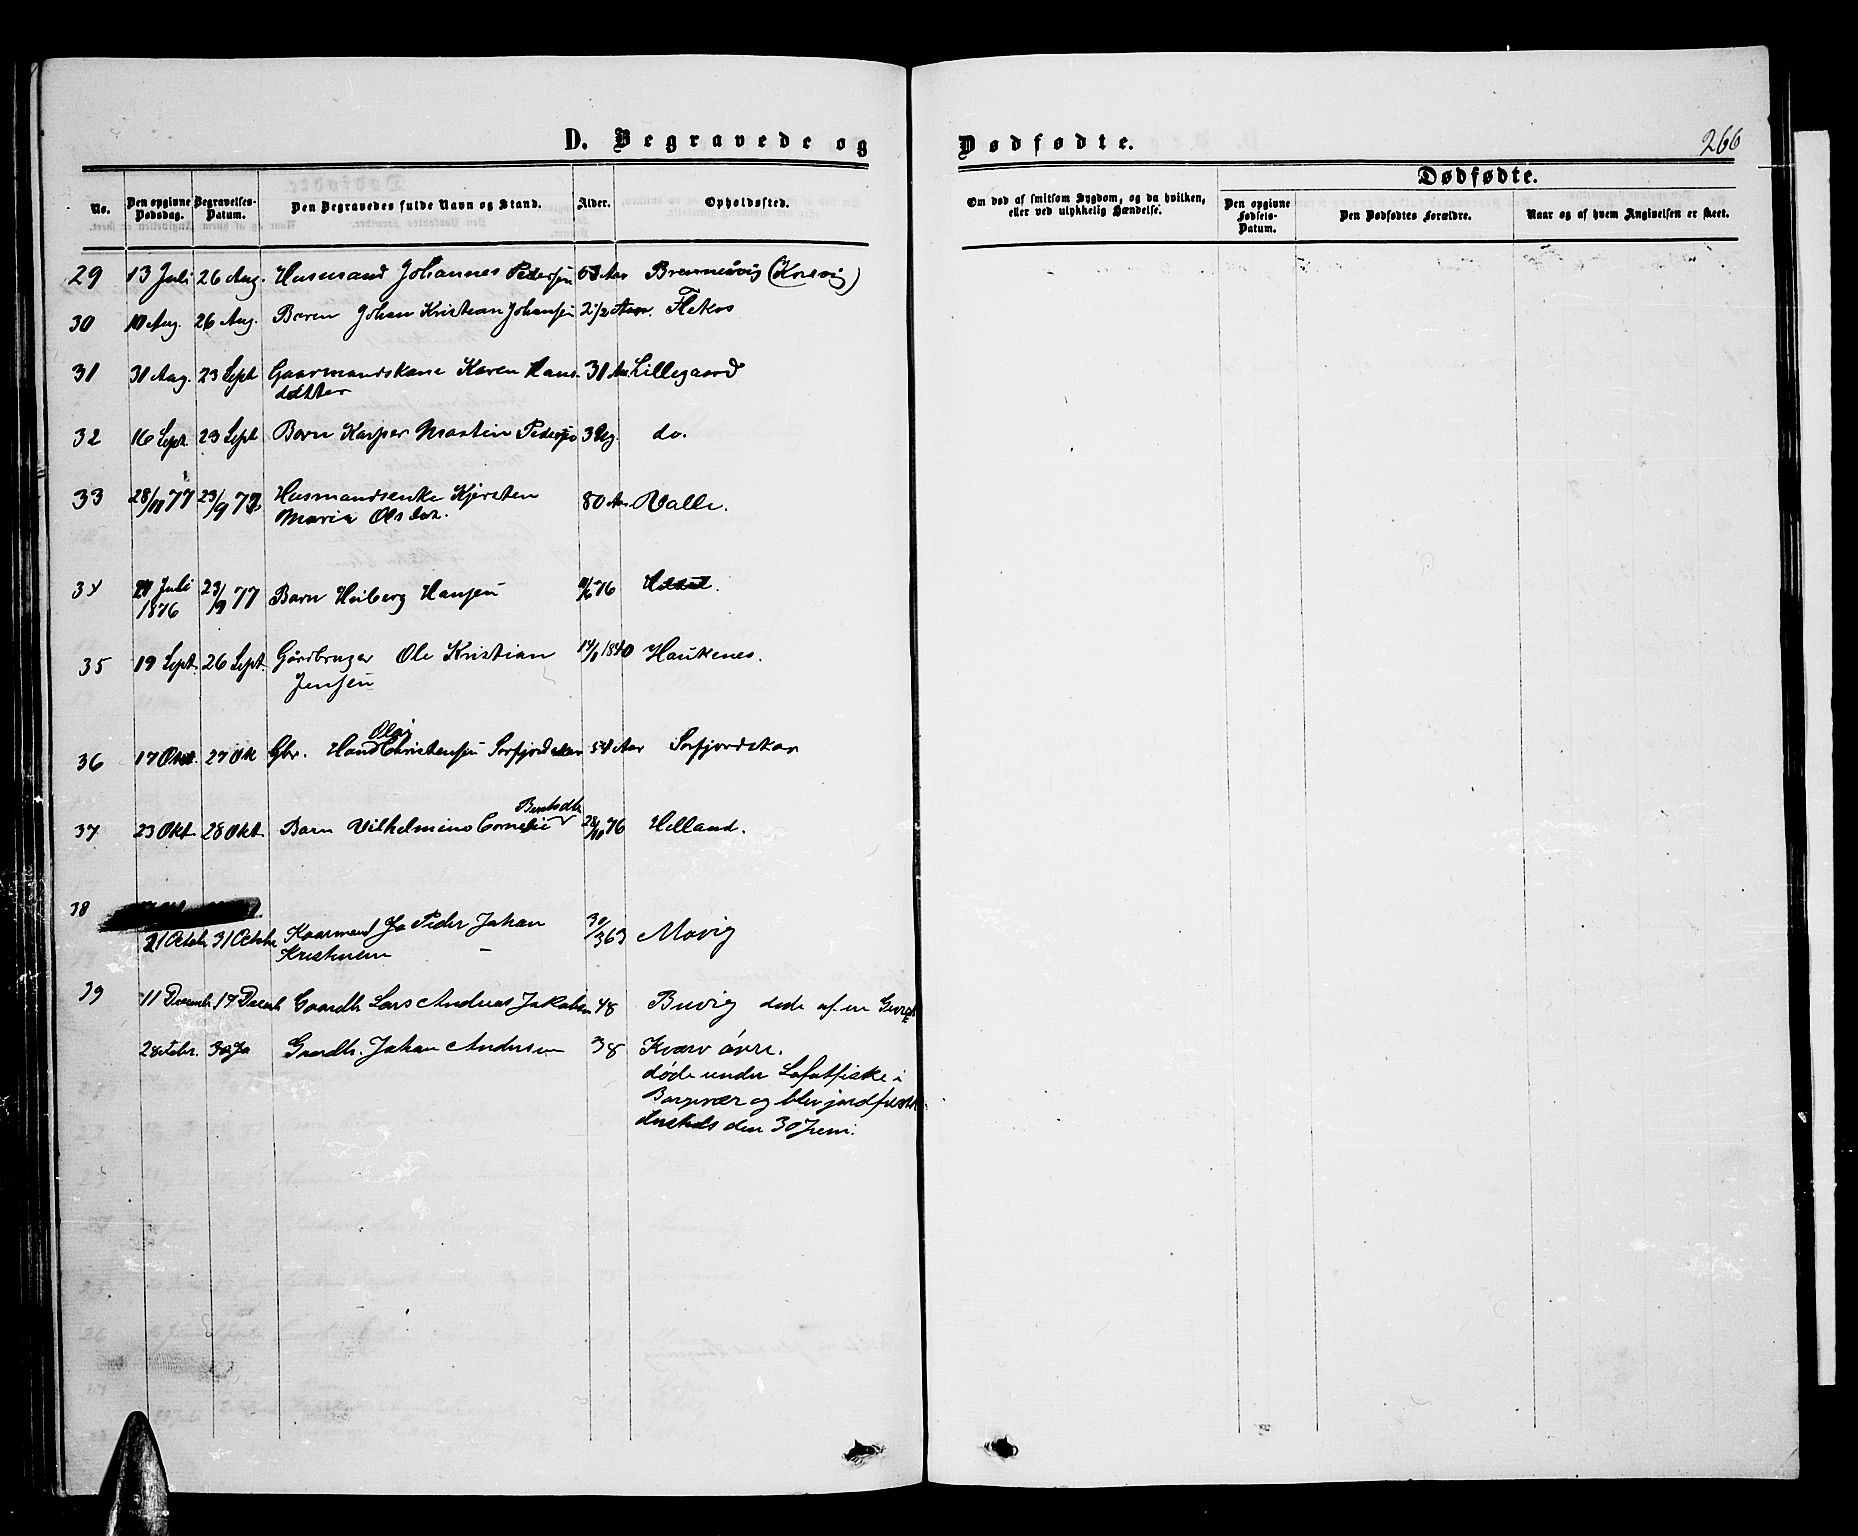 D. Begravede og Dødfødte. 266
Dødfødte.
No. Den opgivne Dødsdag. Begravelses-Datum. Den Begravedes fulde Navn og Stand. Alder. Opholdssted. Om død af smitsom Sygdom, og da hvilken, eller ved ulykkelig Hændelse. Den opgivne Fødsels-Datum. Den Dødfødtes Forældre. Naar og af hvem Angivelsen er skeet.
29 13 Juli 26 Aug. Husmand Johannes Pedersen Aar Brennevig (Korsvig)
30 10 Aug. 26 Aug. Barn Johan Kristian Johansen 2 1/2 Aar. Flekos
31 31 Aug. 23 Sept Gaarmandskone Karen Hans-
datter 31 Aar Lillegaard
32 16 Sept. 23 Sept Barn Kasper Martin Pedersen 3 Ug. do.
33 28/ 77 23/9 77 Husmandsenke Kjersten
Maria Olsdtr. 80 Aar Valle.
34 Juli 23/9 77 Barn Heiberg Hansen 76
1876
35 19 Sept. 26 Sept. Gårdbruger Ole Kristian 1840 Haukenes.
Jensen
Olai
36 17 Okt. 27 Ok Gbr. Hans Christensen Sørfjordskar 54 Aar Sørfjordskar
Bentsdtr
37 23 Okt. 28 Okt. Barn Vilhelmine Cornelie 28/10 76 Helland.
38
21 Octobr 31 Octobr Kaarmand Jo Peder Johan 363 Movig
Kristensen
39 11 Decemb 17 Decemb Gaardb Lars Andreas Jakobsen 48 Buvig døde af en
2 Febr. 30 Gaardb. Johan Andersen 38 Kvarv øvre.
døde under Lofotfiske i
Borgevær og blev jordfæstet
dersteds den 30 Juni.